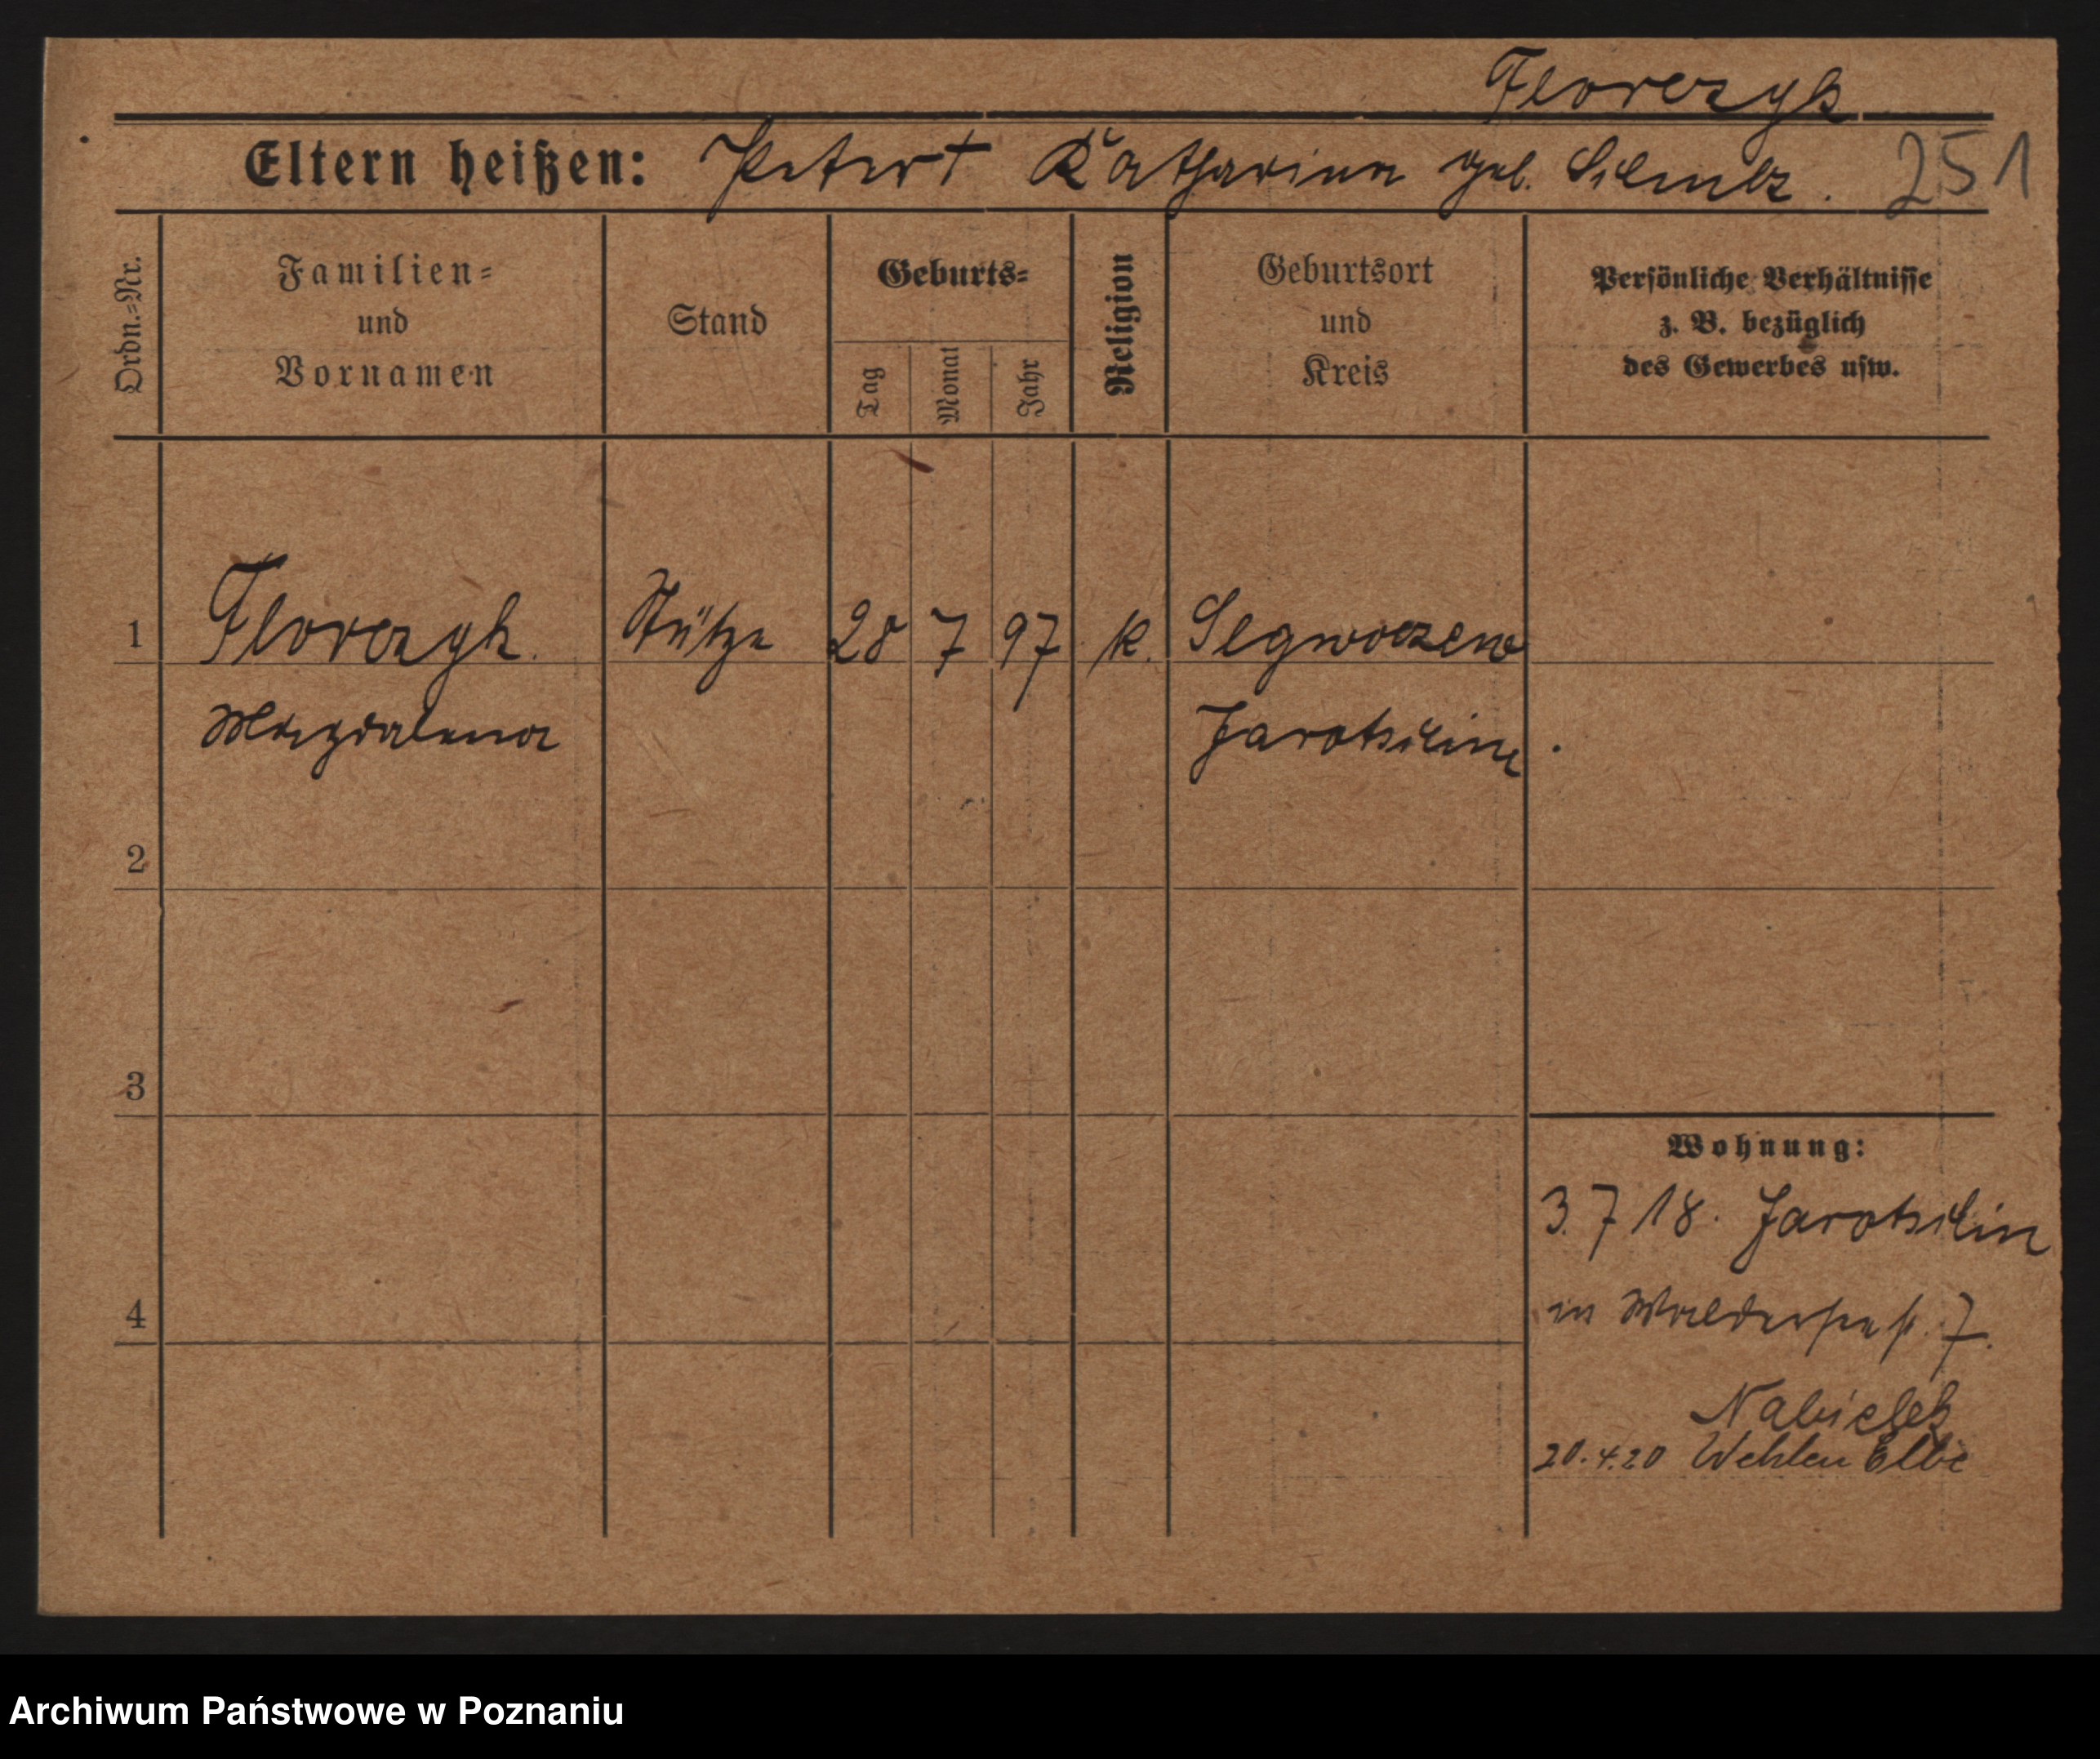 Florczyk
Eltern heißen: Peter † Katharina geb. 251
Ordn.=Nr.
Familien=
und
Vornamen
Stand
Geburts=
Tag
Monat
Jahr
Religion
Geburtsort
und
Kreis
Persönliche Verhältnisse
z. B. bezüglich
des Gewerbes usw.
1 Florczyk. Stütze 28 7 97 k.
Magdalena Jarotschin
2
3
Wohnung:
3.7 18. Jarotschin
4
in Walderseestr. 7.
20.4.20 Wehlen Elbe
Archiwum Państwowe w Poznaniu